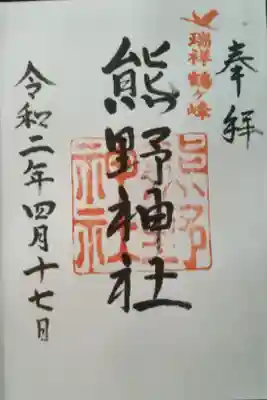 奉拝
瑞祥鶴ヶ峰
熊野神社
熊野神社
令和二年四月十七日